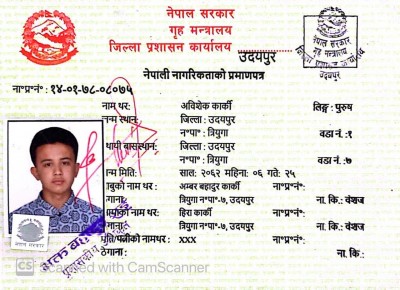 नेपाल सरकार
गृह मन्त्रालय
जिल्ला प्रशासन कार्यालय उदयपुर
नेपाली नागरिकताको प्रमाणपत्र
ना॰प्र॰नं॰ : १४-०१-७८-०८०७५
नाम थर: अविशेक कार्की लिङ्ग: पुरुष
जन्म स्थान: जिल्ला : उदयपुर
न॰पा॰ : त्रियुगा वडा नं.: १
स्थायी बासस्थान: जिल्ला : उदयपुर
न॰पा॰ : त्रियुगा वडा नं.: ७
जन्म मिति: साल: २०६२ महिना: ०६ गते: २५
बाबुको नाम थर: अम्बर बहादुर कार्की ना॰प्र॰नं॰:
ठेगाना: त्रियुगा न॰पा॰-७, उदयपुर ना. कि.: वंशज
आमाको नाम थर: हिरा कार्की ना॰प्र॰नं॰:
ठेगाना: त्रियुगा न॰पा॰-७, उदयपुर ना. कि.: वंशज
पति/पत्नीको नामथर: xxx ना॰प्र॰नं॰:
ठेगाना: ना. कि.:
नेपाल सरकार
उदयपुर
नेपाल सरकार
CS Scanned with CamScanner